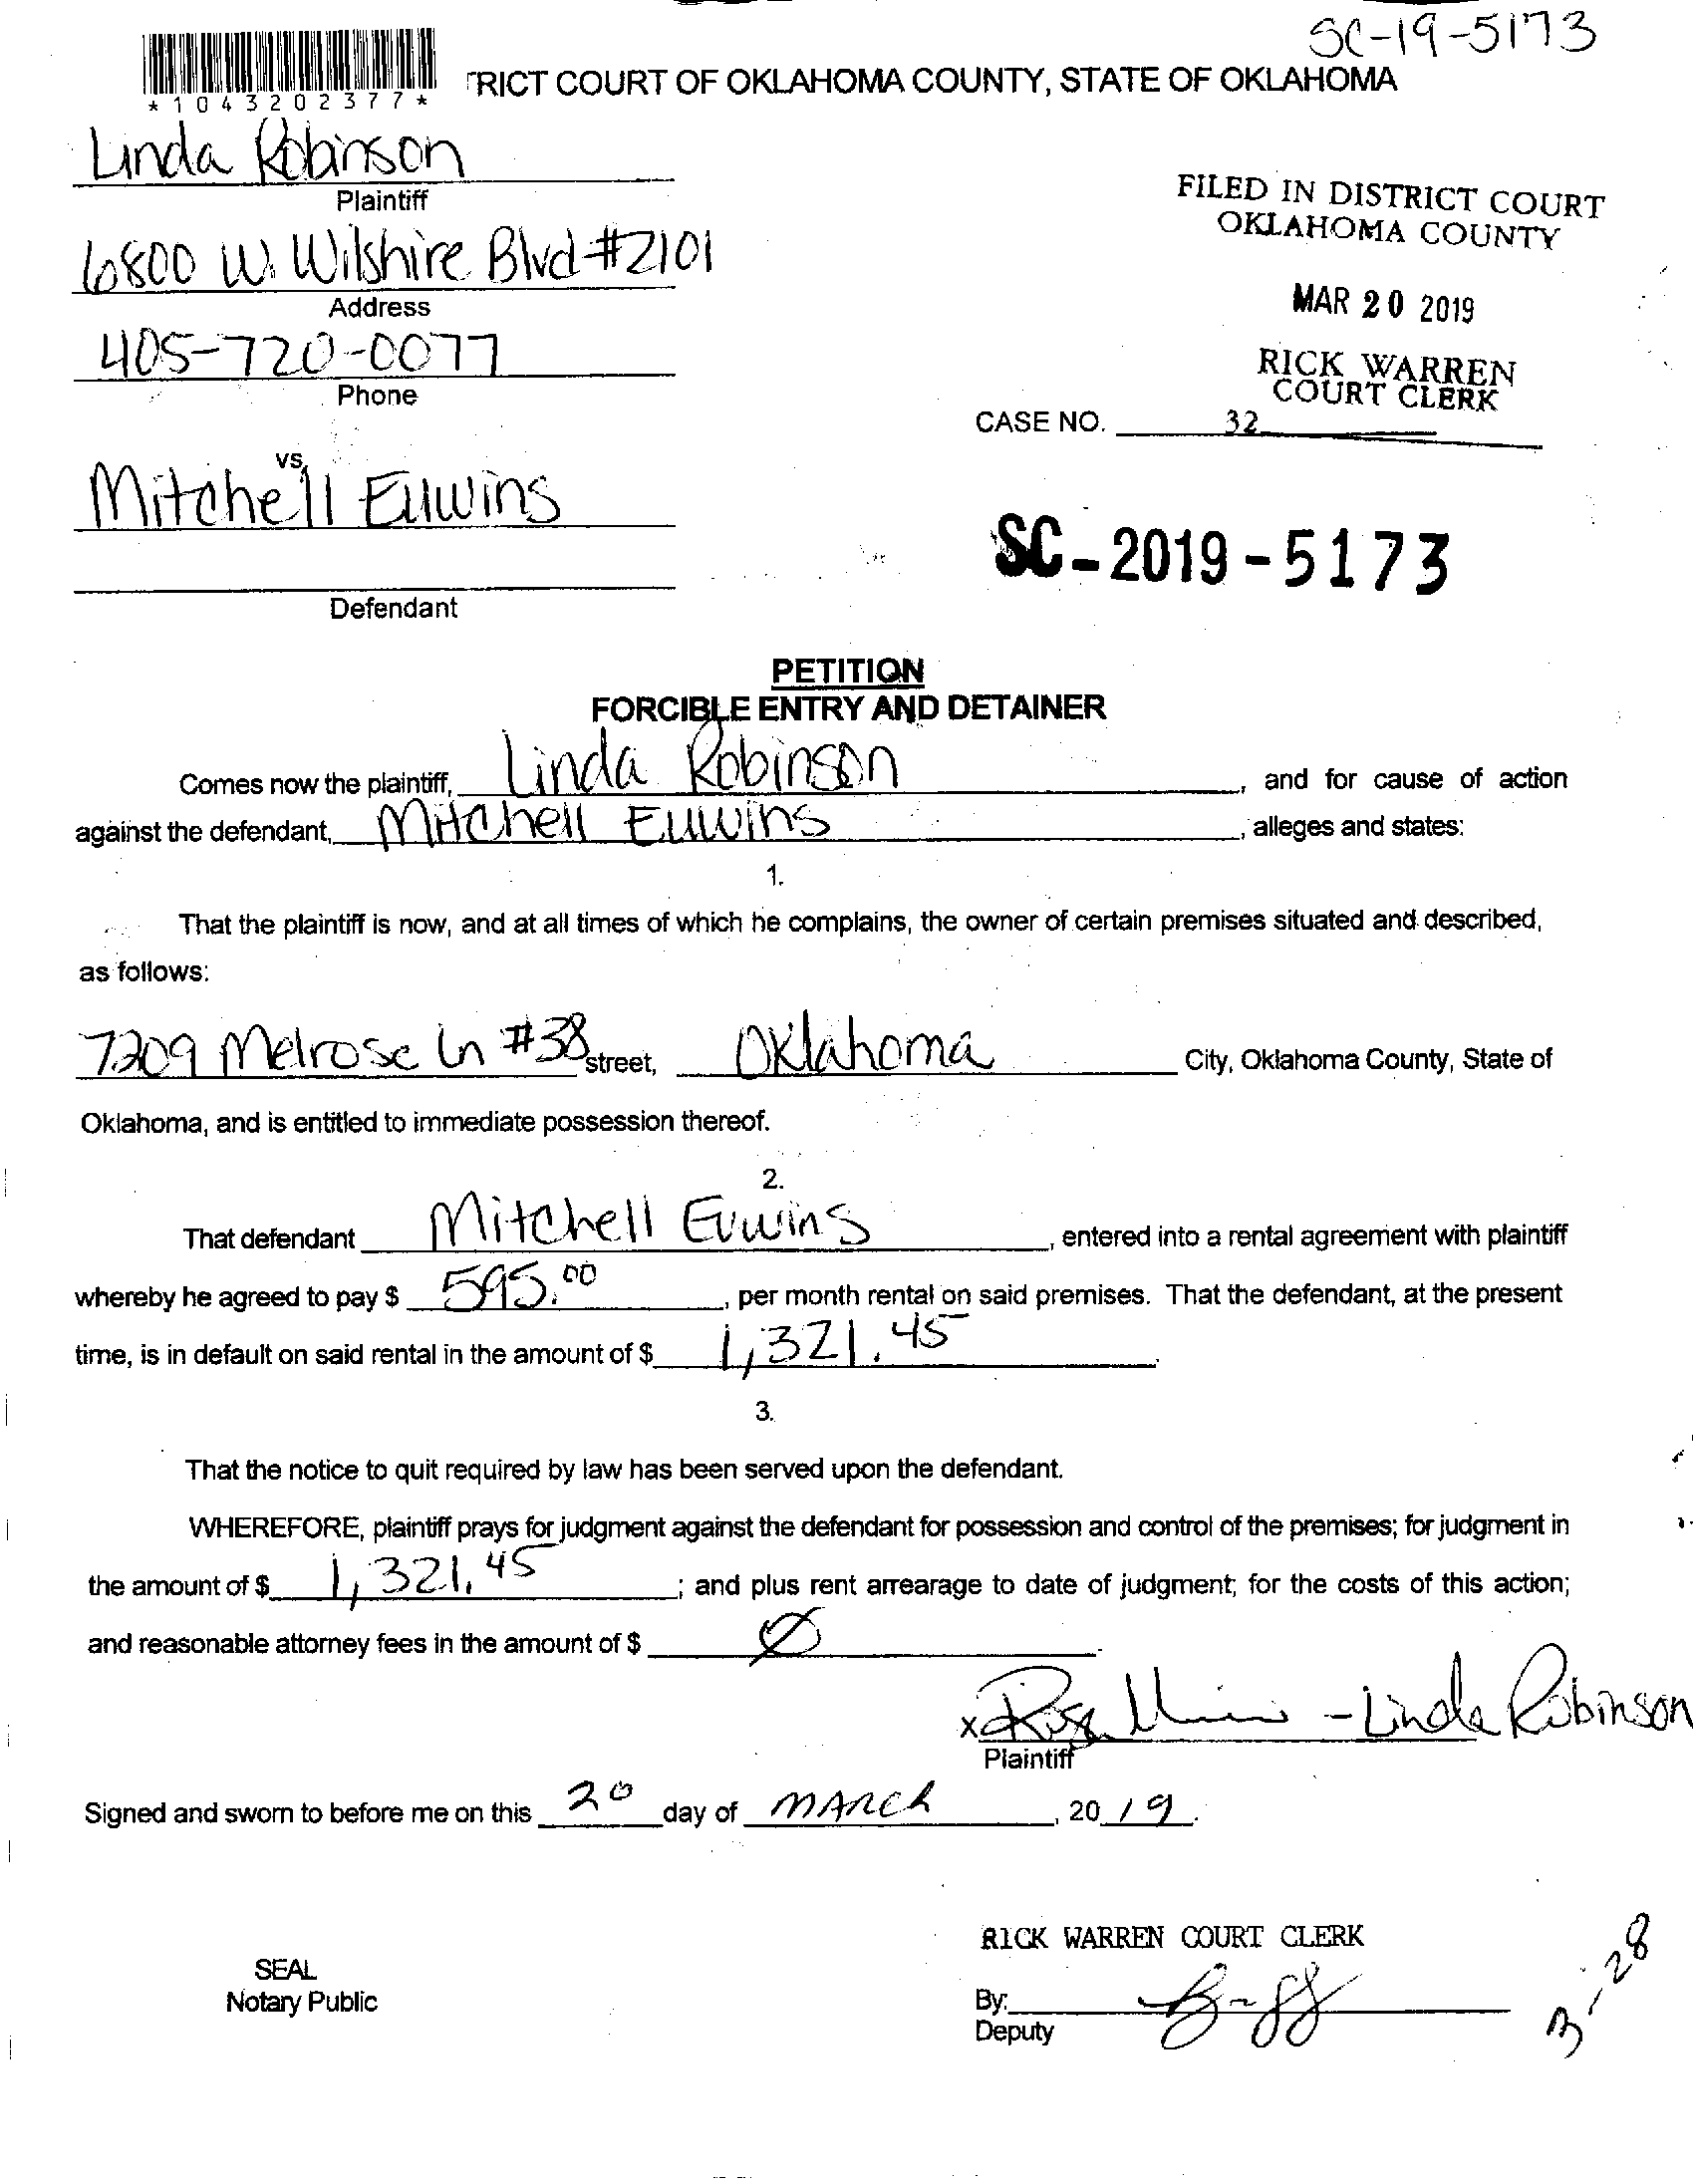 SC-19-5173
*1043202377*
TRICT COURT OF OKLAHOMA COUNTY, STATE OF OKLAHOMA
Linda Robinson
Plaintiff
6800 W. Wilshire Blvd #2101
Address
405-720-0077
Phone
FILED IN DISTRICT COURT
OKLAHOMA COUNTY
MAR 20 2019
RICK WARREN
COURT CLERK
CASE NO. 32
vs.
Mitchell Euwins
Defendant
SC-2019-5173
PETITION
FORCIBLE ENTRY AND DETAINER
Comes now the plaintiff, Linda Robinson, and for cause of action
against the defendant, Mitchell Euwins, alleges and states:
1.
That the plaintiff is now, and at all times of which he complains, the owner of certain premises situated and described,
as follows:
7209 Melrose Ln #38 street, Oklahoma City, Oklahoma County, State of
Oklahoma, and is entitled to immediate possession thereof.
2.
That defendant Mitchell Euwins, entered into a rental agreement with plaintiff
whereby he agreed to pay $ 595.00, per month rental on said premises. That the defendant, at the present
time, is in default on said rental in the amount of $ 1,321.45.
3.
That the notice to quit required by law has been served upon the defendant.
WHEREFORE, plaintiff prays for judgment against the defendant for possession and control of the premises; for judgment in
the amount of $ 1,321.45; and plus rent arrearage to date of judgment; for the costs of this action;
and reasonable attorney fees in the amount of $ Ø.
x - Linda Robinson
Plaintiff
Signed and sworn to before me on this 20 day of MARCh, 2019.
RICK WARREN COURT CLERK
SEAL
Notary Public
By:
Deputy
3-28